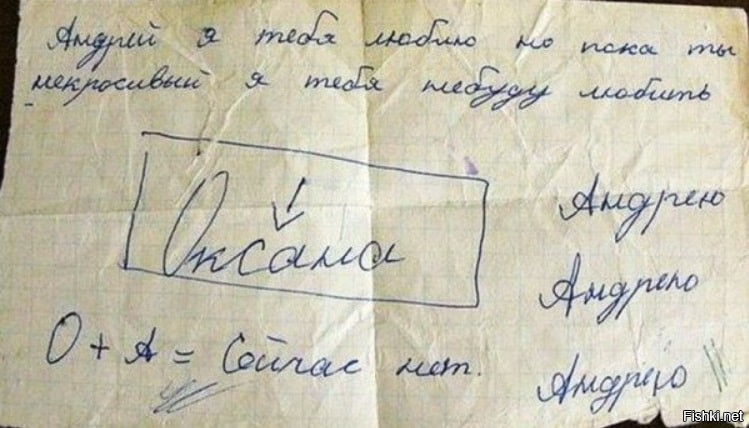 Андрей я тебя люблю но пока ты
некросивый я тебя небуду любить
Оксана
Андрею
Андрею
О + А = Сейчас нет.
Андрею
Fishki.net